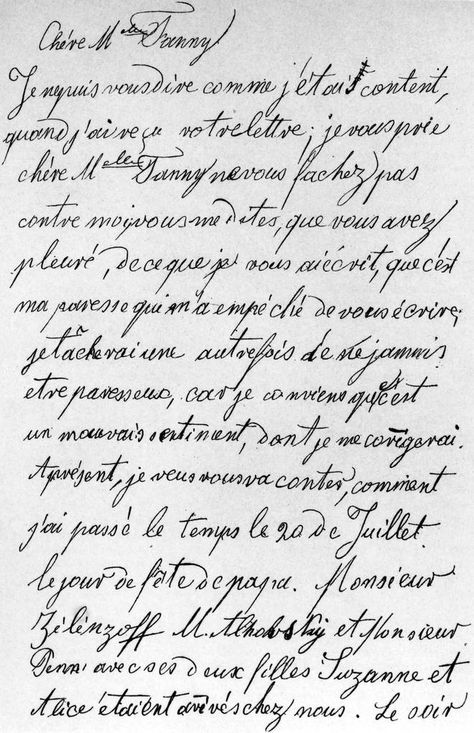 Chére M elle Fanny
Je ne puis vous dire comme j'étais content,
quand j'ai reçu votre lettre; je vous prie
chère M elle Fanny ne vous fachez pas
contre moi, vous me dites, que vous avez
pleuré, de ce que je vous ai écrit, que c'est
ma paresse qui m'a empéché de vous écrire;
je tâcherai une autre fois de ne jamais
etre paresseux, car je conviens que c'est
un mauvais sentiment, dont je me corigerai.
Aprésent, je veus vous raconter, comment
j'ai passé le temps le 20 de Juillet
le jour de fête de papa. Monsieur
Zélénzoff M. Alhovsky et Monsieur
avec ses deux filles Suzanne et
Alice étaient arivés chez nous. Le soir